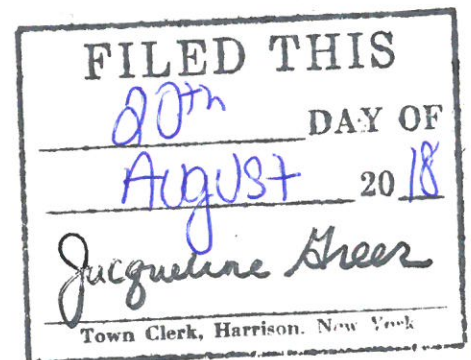 FILED THIS
20th DAY OF
August 2018
Jacqueline Greer
Town Clerk, Harrison. New York